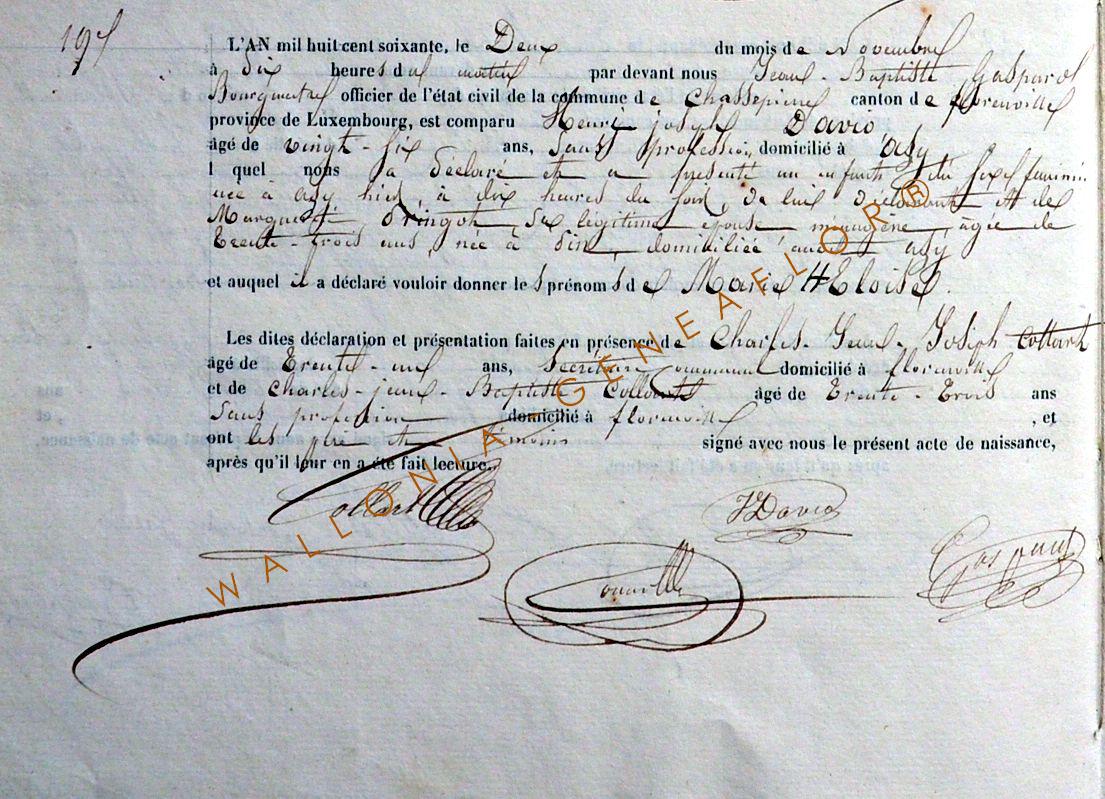 197
L'AN mil huit cent soixante, le Deux du mois de Novembre
à dix heures du matin par devant nous Jean-Baptiste Gaspard
officier de l'état civil de la commune de Chassepierre canton de florenville
province de Luxembourg, est comparu Henri joseph David
âgé de vingt-six ans, Sans profession, domicilié à asy
lquel nous a déclaré et a présenté un enfant du sexe féminin
née à asy hier, à dix heures du soir, de lui déclarant et de
Marguerite Dringot, Sa légitime épouse ménagère, âgée de
Trente-trois ans, née à domiciliée asy
et auquel il a déclaré vouloir donner les prénoms de Marie HEloise.
Les dites déclaration et présentation faites en présence de Charles-Jean-Joseph Collart
âgé de Trente-un ans, Secrétaire communal domicilié à florenville
et de Charles-jean-Baptiste âgé de Trente-Trois ans
Sans profession domicilié à florenville, et
ont les père et témoins signé avec nous le présent acte de naissance,
après qu'il leur en a été fait lecture.
Collart
HDavid
Gaspard
WALLONIA GENEAFLOR®